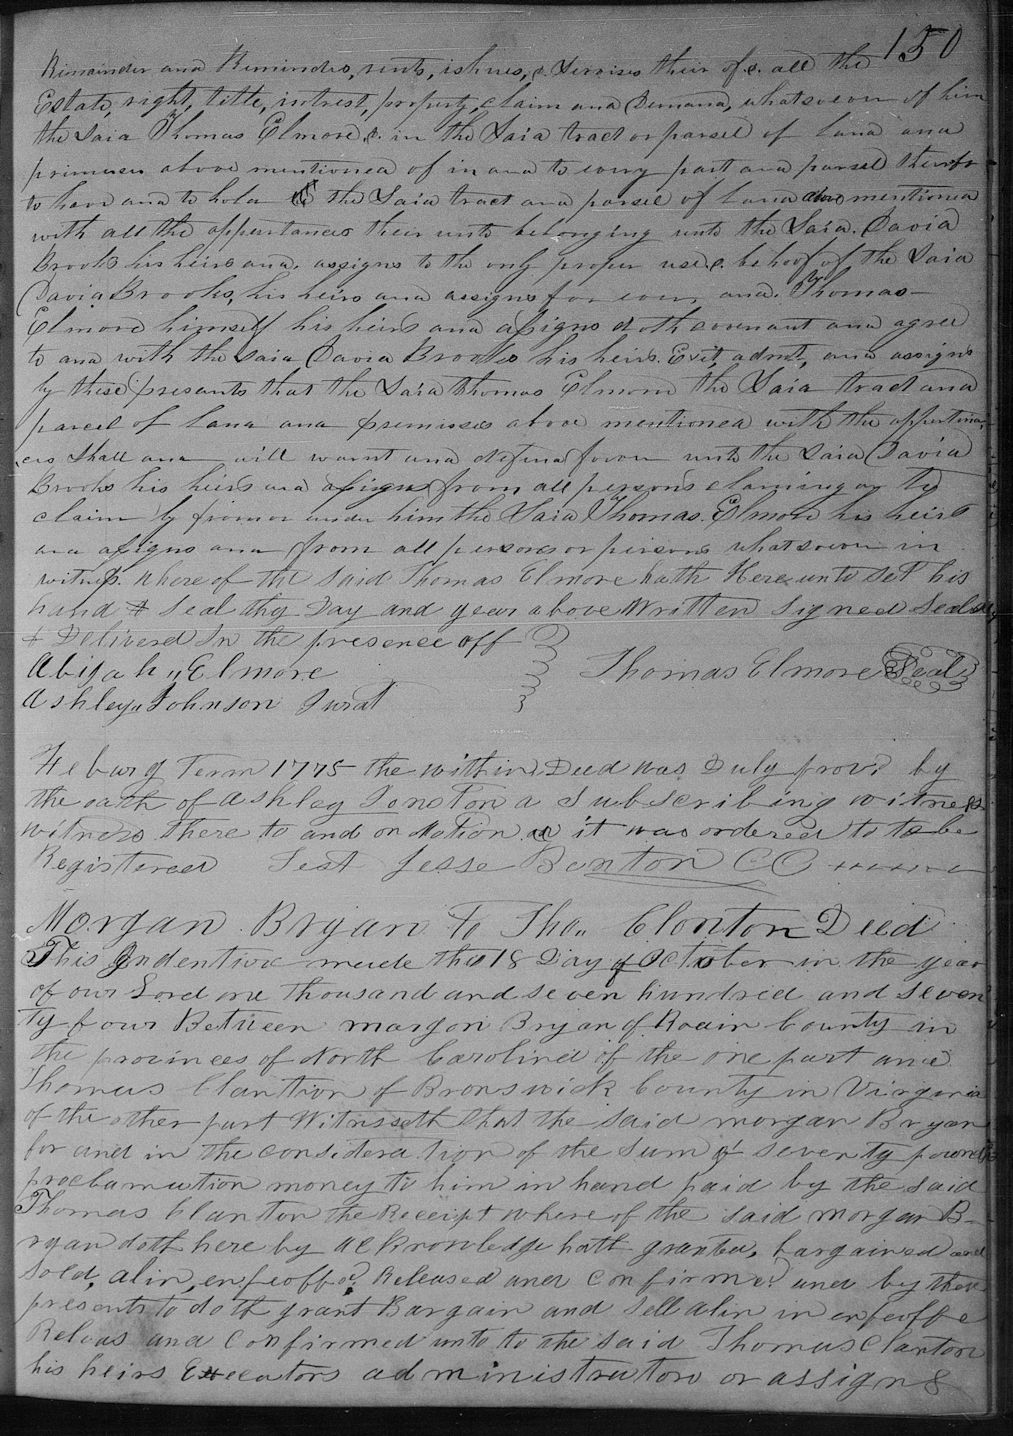 150
Rimainder and Rimindrs, rents, ishues, & Servises their of &. all the
Estate, right, title, intrest, property, claim and Demand, whatsoever of him
the Said Thomas Elmore &. in the Said tract or parsel of Land and
primises above mentioned of in and to every part and parsel thereof
to have and to hold the Said tract and parsel of Land above mentioned
with all the appurtances their unto belonging unto the Said. David
Brooks his heirs and. assigns to the only proper use &. behoof of the Said
David Brooks, his heirs and assigns for ever, and. Thomas
Elmore himself his heirs and assigns doth covenant and agree
to and with the Said David Brooks his heirs. Exit, admt, and assigns
by these presants that the Said Thomas Elmore the Said tract and
parcel of Land and premisses above mentioned with the appertinan,
ces Shall and will warnt and defind forever unto the Said David
Brooks his heirs and assigns from all persons claiming or to
claim by from or under him the Said Thomas. Elmore his heirs
and assigns and from all persons or persons whatsoever in
witness. where of the said Thomas Elmore hath Here unto set his
hand & Seal the Day and year above Written Signed Seald
& Delivered In the presence off
Abijah Elmore Thomas Elmore Seal
Ashley Johnson Jurat
Feburg Term 1775 the within Deed was Duly provd by
the oath of Ashley Jonston a Subscribing witness
witness there to and on Motion it was ordered to to be
Registered Test Jesse Benton CC
Morgan Bryan to Tho,, Clonton Deed
This Indentive made the 18 Day of October in the year
of our Lord one thousand and seven hundred and Seven
ty four Between Morgon Bryan of Roain County in
the provinces of North Carolina of the one part and
Thomas Clantion of Bronswick County in Virginia
of the other part Witnisseth that the said morgan Bryan
for and in the consideration of the Sum of seventy pounds
proclamation money to him in hand paid by the said
Thomas Clanton the Receipt where of the said morgan B-
ryan doth here by acknowledge hath granted, bargained and
Sold, alin, enfeoffed Released and Confirmed and by these
presents to doth grant Bargain and Sell alin in enfeoffe
Releas and Confirmed unto to the said Thomas Clanton
his heirs Executors administrators or assigns